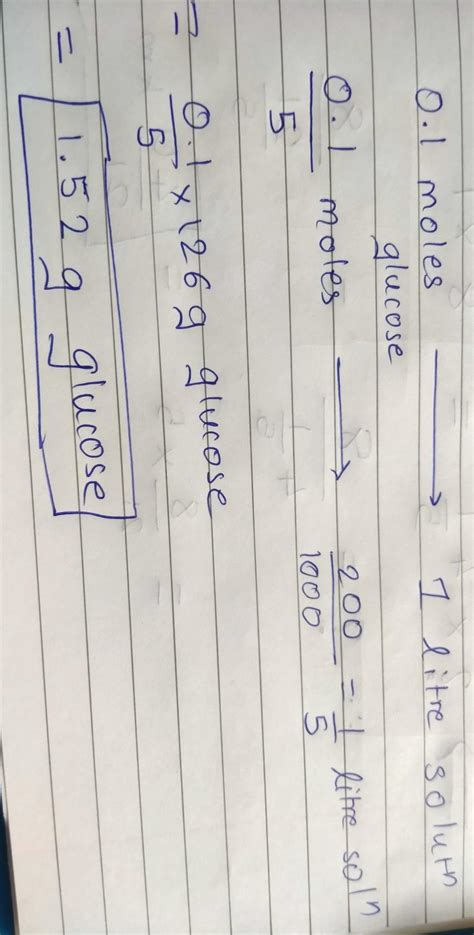 0.1 moles glucose → 1 litre solutn
0.1/5 moles → 200/1000 = 1/5 litre solⁿ
= 0.1/5 × 126 g glucose
= 1.52 g glucose